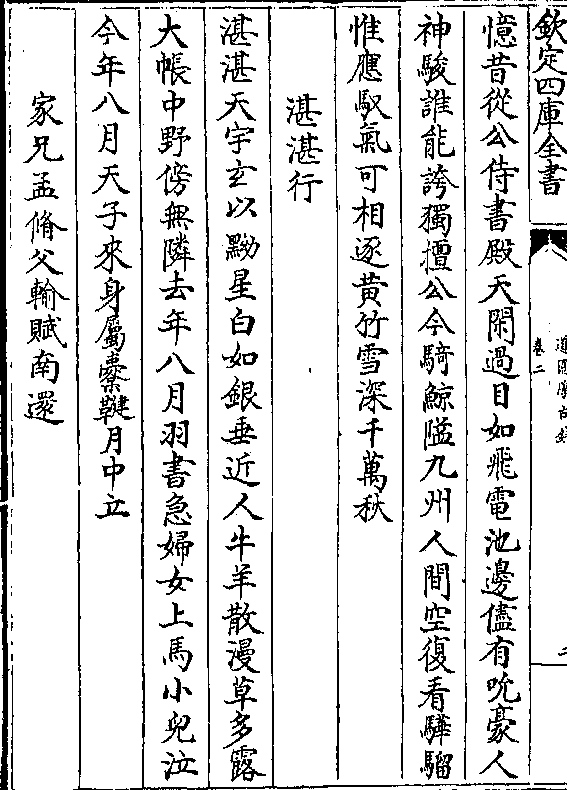 欽定四庫全書
道園學古錄
卷二
二
憶昔從公侍書殿天閑過目如飛電池邊儘有吮豪人
神駿誰能誇獨擅公今騎鯨隘九州人間空復看驊騮
惟應馭氣可相逐黄竹雪深千萬秋
湛湛行
湛湛天宇玄以黝星白如銀垂近人牛羊散漫草多露
大帳中野傍無隣去年八月羽書急婦女上馬小兒泣
今年八月天子來身屬櫜鞬月中立
家兄孟脩父輸賦南還